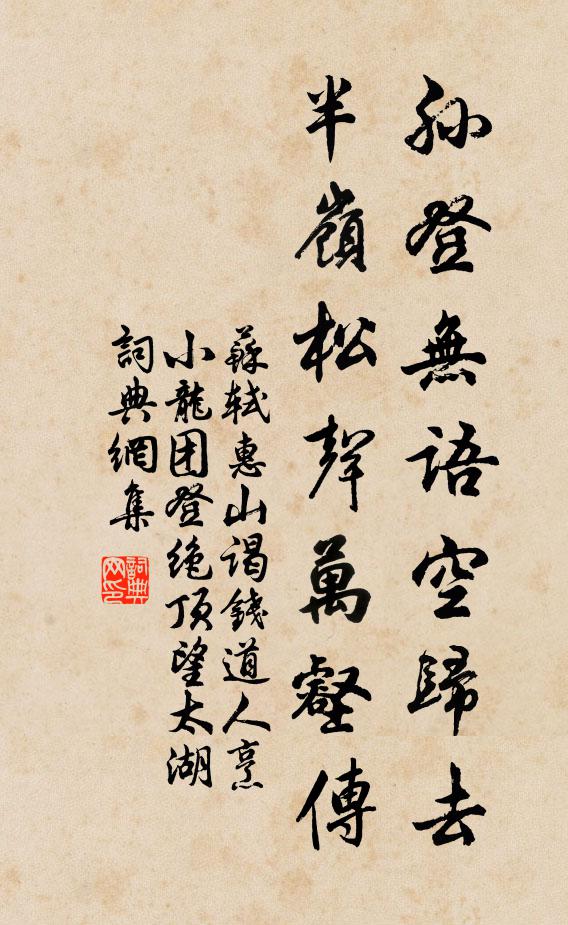 孙登無語空歸去
半嶺松聲萬壑傳
蘇軾惠山謁錢道人烹
小龍团登绝顶望太湖
詞典網集
詞典网印